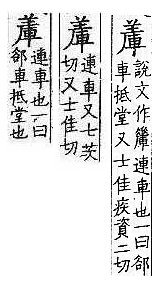 說文作連車也一曰郤
車抵堂又士佳疾資二切
連車又七茨
切又士佳切
連車也一曰
郤車抵堂也